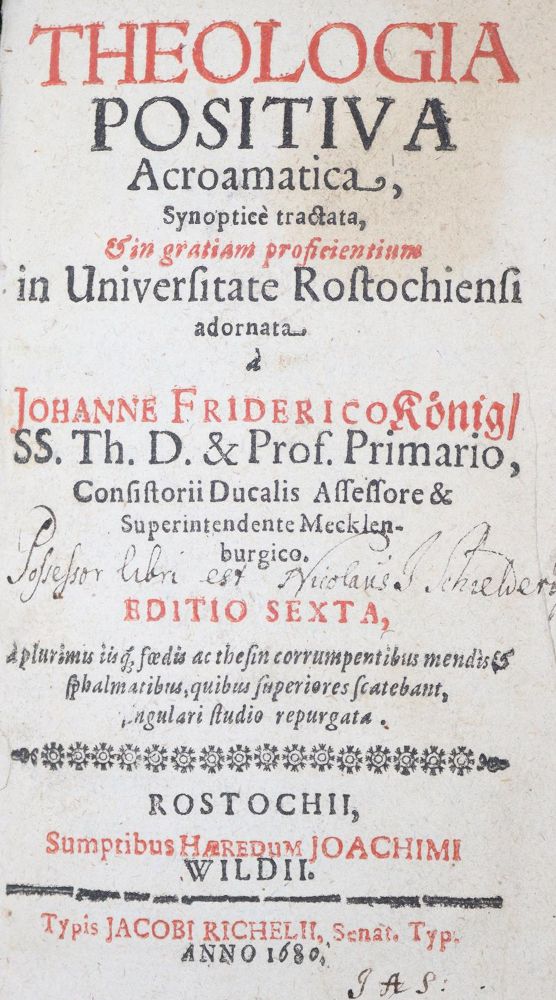 THEOLOGIA
POSITIVA
Acroamatica,
Synopticè tractata,
& in gratiam proficientium
in Univerſitate Roſtochienſi
adornata
à
JOHANNE FRIDERICO König/
SS. Th. D. & Prof. Primario,
Conſiſtorii Ducalis Aſſeſſore &
Superintendente Mecklen-
burgico.
Poſseſsor libri est Nicolaus J
EDITIO SEXTA,
à plurimis iisq́, fœdis ac theſin corrumpentibus mendis &
ſphalmatibus, quibus ſuperiores ſcatebant,
ſingulari ſtudio repurgata.
ROSTOCHII,
Sumptibus HÆREDUM JOACHIMI
WILDII.
Typis JACOBI RICHELII, Senat. Typ.
ANNO 1680.
J A S: